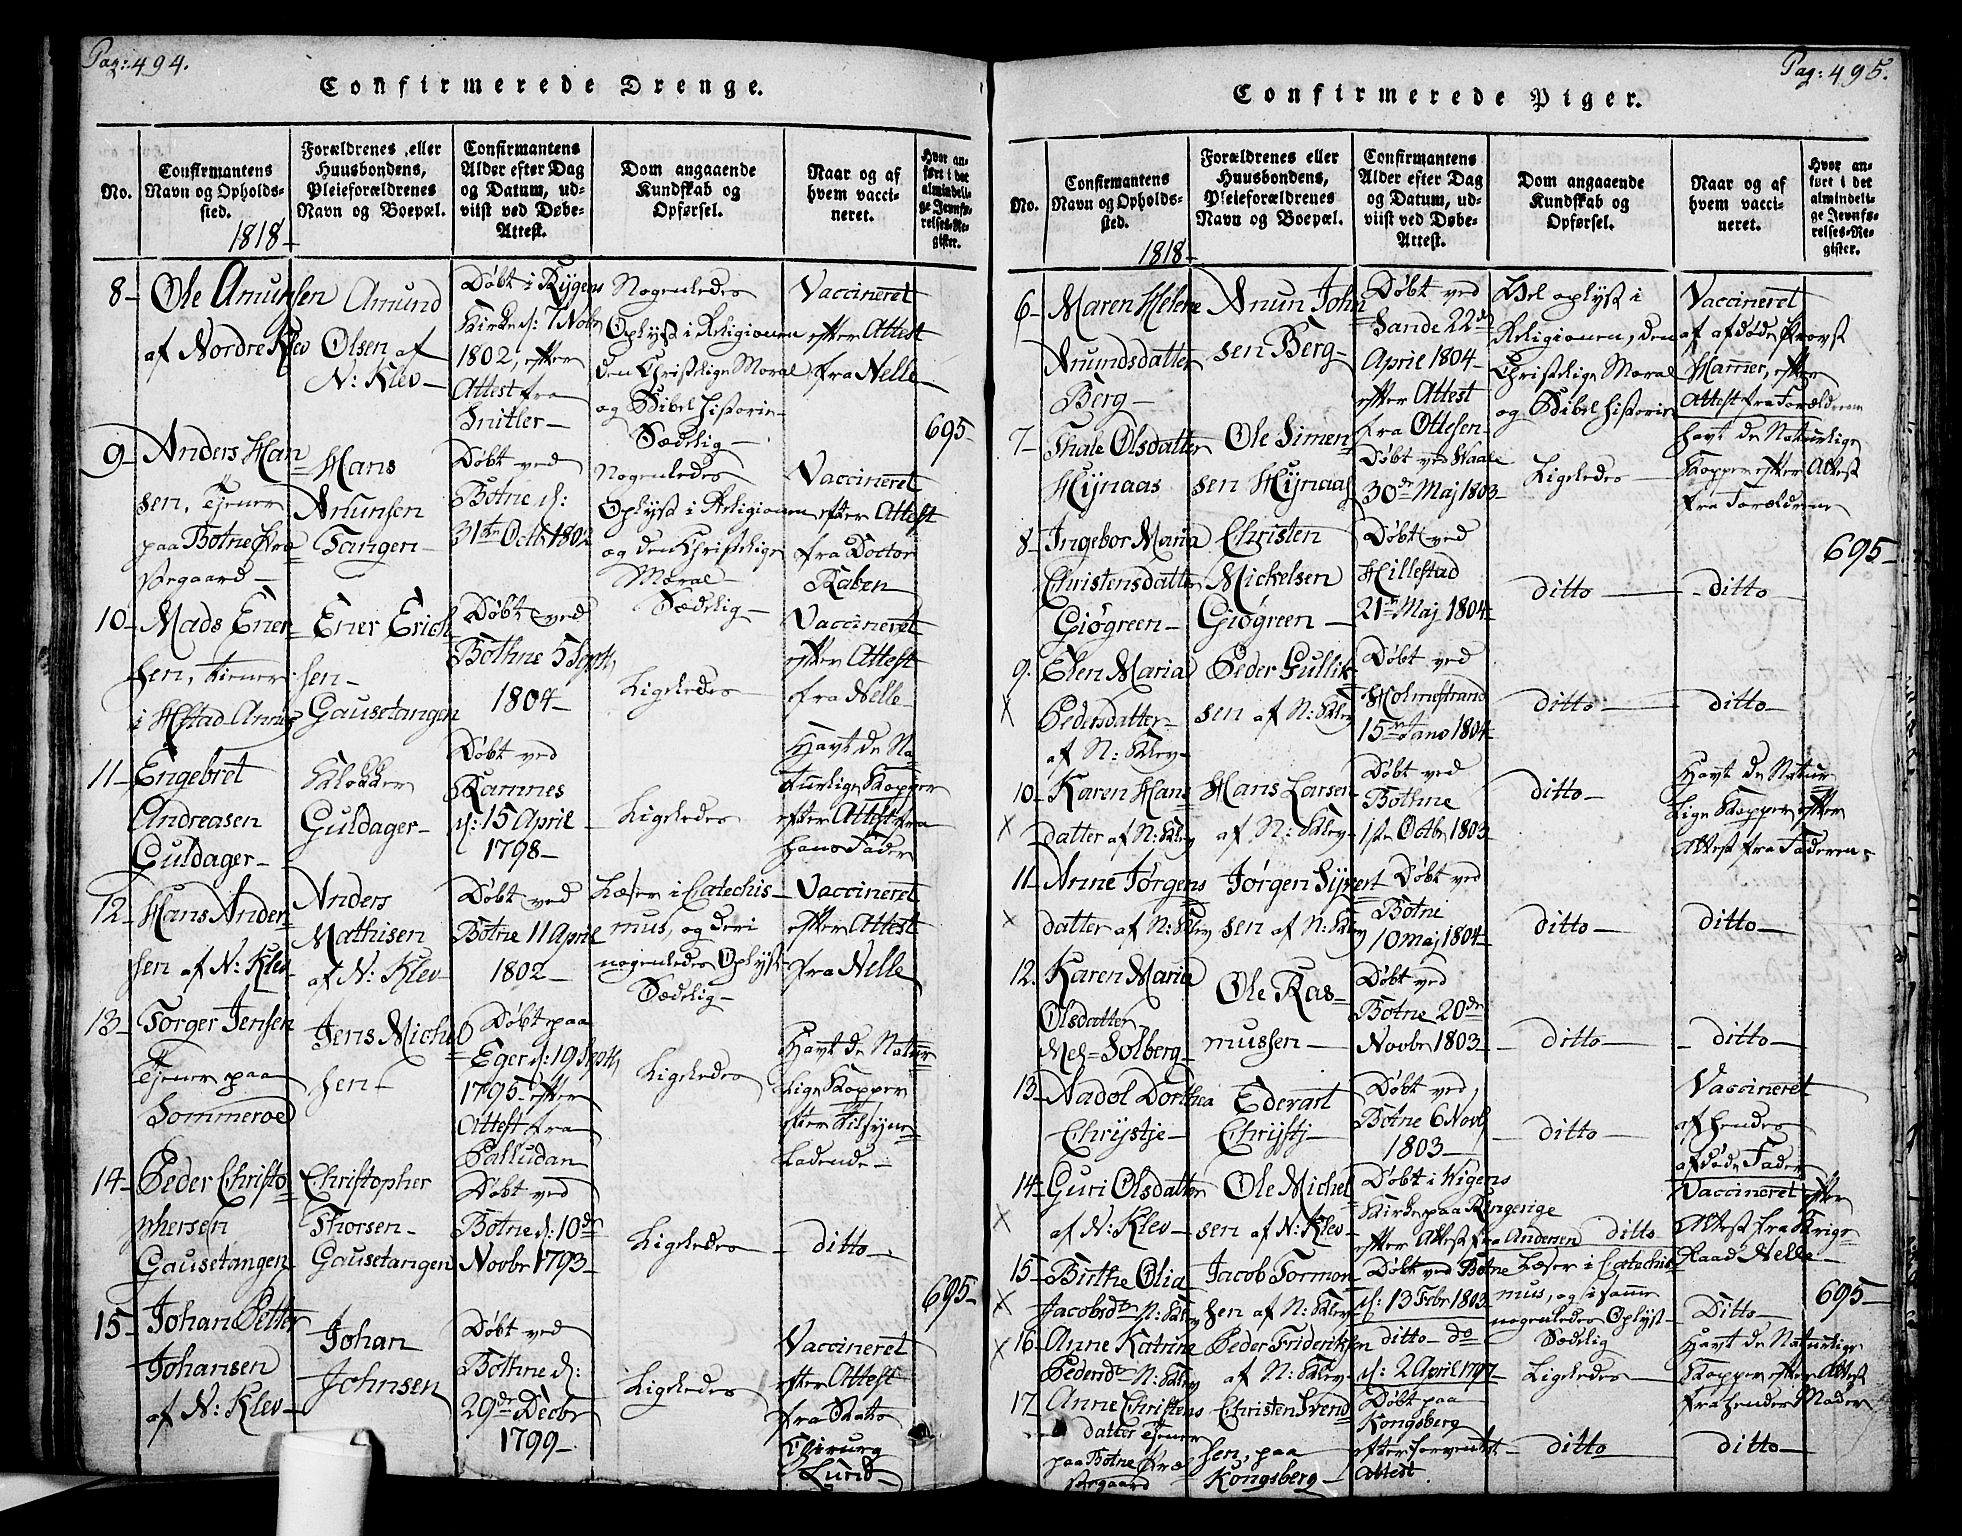 Pag: 494.
Confirmerede Drenge.
No.
Confirmantens
Navn og Opholds-
sted.
1818-
Forældrenes, eller
Huusbondens,
Pleieforældrenes
Navn og Boepæl.
Confirmantens
Alder efter Dag
og Datum, ud-
viist ved Døbe-
Attest.
Dom angaaende
Kundskab og
Opførsel.
Naar og af
hvem vacci-
neret.
Hvor an-
ført i det
almindeli-
ge Jevnfø-
relses-Re-
gister.
8-
Ole Amunsen
af Nordre Klev
Amund
Olsen af
N: Klev-
Døbt i Rygens
Kirke d: 7 Nobr
1802, efter
Attest fra
Snitler-
Nogenledes
Oplyst i Religionen
den Christelige Moral
og Bibel historie-
Sædelig-
Vaccineret
efter Attest
fra Nelle-
695-
9-
Anders Han
sen, Tjener
paa Botne Præ
stegaard-
Hans
Amunsen
Tangen-
Døbt ved
Botne d:
31te Octb 1802
Nogenledes
Oplyst i Religionen
og den Christelige
Moral-
Sædelig-
Vaccineret
efter Attest
fra Doctor
Raben
10-
Mads Ener-
sen, tiener
Ener Erich
sen-
Gausetangen
Døbt ved
Bothne 5 Septb
1804-
Ligeledes-
Vaccineret
efter Attest
fra Nelle-
11-
Engebret
Andreasen
Guldager-
Klokker
Guldager-
Døbt ved
Ramnes
d: 15 April
1798-
Ligeledes
Havt de Na
turlige Kopper
efter Attest fra
hans Fader
12-
Hans Ander
sen af N: Klev
Anders
Mathisen
af N: Klev-
Døbt ved
Botne 11 April
1802-
Læser i Catechis-
mus, og deri
nogenledes Oplyst-
Sædelig-
Vaccineret
efter Attest
fra Nelle
13-
Torger Jensen
Tjener paa
Sommeroe
Jens Michel
sen-
Døbt paa
Eger d: 19 Septb
1795 efter
Attest fra
Palludan
Ligeledes
Havt de Natur
lige Kopper
efter Tilsyne-
ladende-
14-
Peder Christo
phersen
Gausetangen
Christopher
Thorsen-
Gausetangen
Døbt ved
Botne d: 10de
Novbr 1793-
Ligeledes
- ditto-
695-
15-
Johan Petter
Johansen
af N: Klev-
Johan
Johnsen
Døbt ved
Bothne d:
29de Decbr
1799-
Ligeledes
Vaccineret
efter Attest
fra Stats
Chirurg
Lund-
Pag: 495.
Confirmerede Piger.
No.
Confirmantens
Navn og Opholds-
sted.
1818-
Forældrenes eller
Huusbondens,
Pleieforældrenes
Navn og Boepæl.
Confirmantens
Alder efter Dag
og Datum, ud-
viist ved Døbe-
Attest.
Dom angaaende
Kundskab og
Opførsel.
Naar og af
hvem vacci-
neret.
Hvor an-
ført i det
almindeli-
ge Jevnfø-
relses-Re-
gister.
6-
Maren Helene
Anundsdatter
Berg-
Anun John
sen Berg-
Døbt ved
Sande 22de
Aprie 1804-
efter Attest
fra Ottesen-
Vel oplyst i
Religionen, den
Christelige Moral
og Bibel historie
Vaccineret
af afdøde Provst
Hammer, efter
Attest fra Forældrene
7-
Thale Olsdatter
Hijnaas
Ole Simen
sen Hijnaas
Døbt ved Haale
30de Maj 1803-
Ligeledes-
Havt de Naturlige
Kopper efter Attest
fra Forældrene
8-
Ingebor Maria
Christensdatter
Giøgreen-
Christen
Mickelsen
Giøgreen-
Døbt ved
Hillestad
21de Maj 1804-
ditto-
- ditto-
695-
9.
x
Elen Maria
Pedersdatter-
af N: Klev-
Peder Gullik
sen af N: Klev
Døbt ved
Holmestrand
15de Janv 1804-
ditto-
ditto-
10-
x
Karen Hans
datter af N: Klev
Hans Larsen-
af N: Klev-
Døbt ved
Bothne
1ste Octbr 1803-
ditto-
Havt de Natur
lige Kopper efter
Attest fra Faderen-
11-
x
Anne Jørgens
datter af N: Klev
Jørgen Sijvert
sen af N: Klev
Døbt ved
Botne
10 maj 1804-
ditto-
ditto-
12.
Karen Maria
Olsdatter
Mel- Solberg-
Ole Ras-
mussen-
Døbt ved
Botne 20de
Novbr 1803-
- ditto-
- ditto-
13-
Aadol Dorthea
Chrijstje-
Ederart
Chrijstj-
Døbt ved
Botne 6 Novb
1803-
ditto-
Vaccineret
af hendes
afdøde Fader
14-
x
Guri Olsdatter
af N: Klev-
Ole Michel
sen af N: Klev-
Døbt i Vigens
Kirke paa Ringerige
efter Attest fra Andersen
ditto
Vaccineret efter
Attest fra Krigs-
Raad Nelle-
15-
x
Birthe Olia
Jacobsdtr N: Klev
Jacob Tormon
sen af N: Klev
Døbt ved Botne
d: 13 Febr 1803-
Læser i Catechis
mus, og i samme
nogenledes Oplyst-
Sædelig
Ditto-
695-
16-
x
Anne Katrine
Pedersdtr N: Klev
Peder Frideriksen
af N: Klev-
ditto- do
d: 2 April 1797-
Ligeledes-
Havt de Naturlige
Kopper efter Attest
fra hendes Moder
17-
Anne Christens
datter Tjener
paa Botne Præ
stegaard
Christen Svend
sen, paa
Kongsberg-
Døbt paa
Kongsberg
efter forventet
Attest.
- ditto-
ditto-